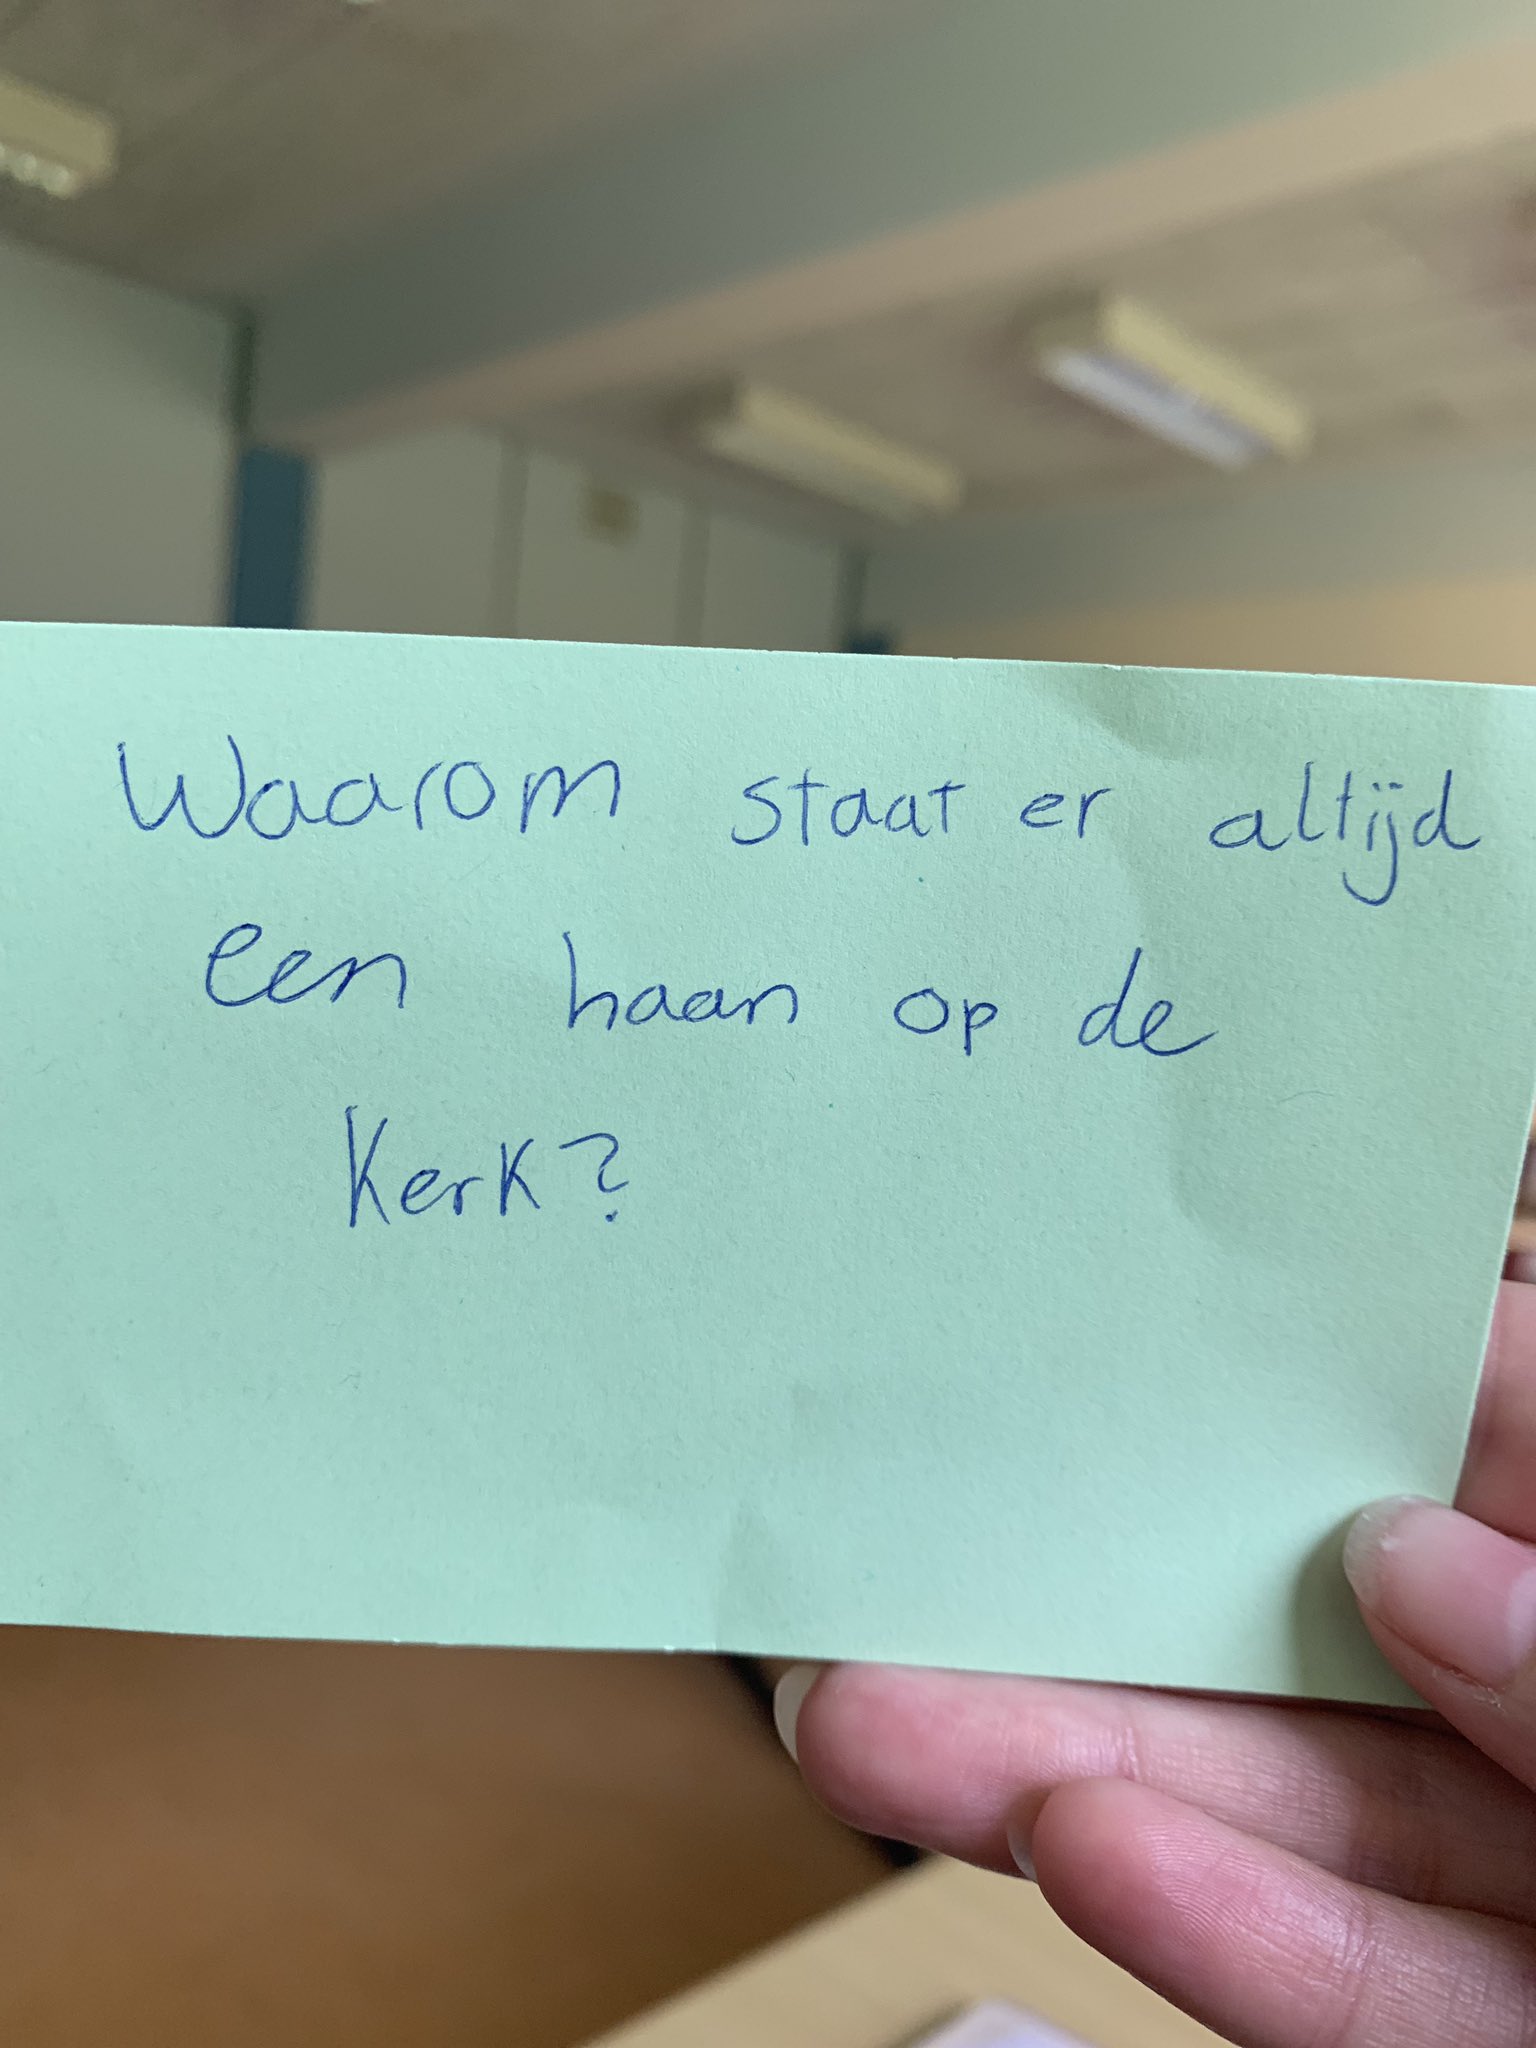 Waarom staat er altijd
een haan op de
kerk?